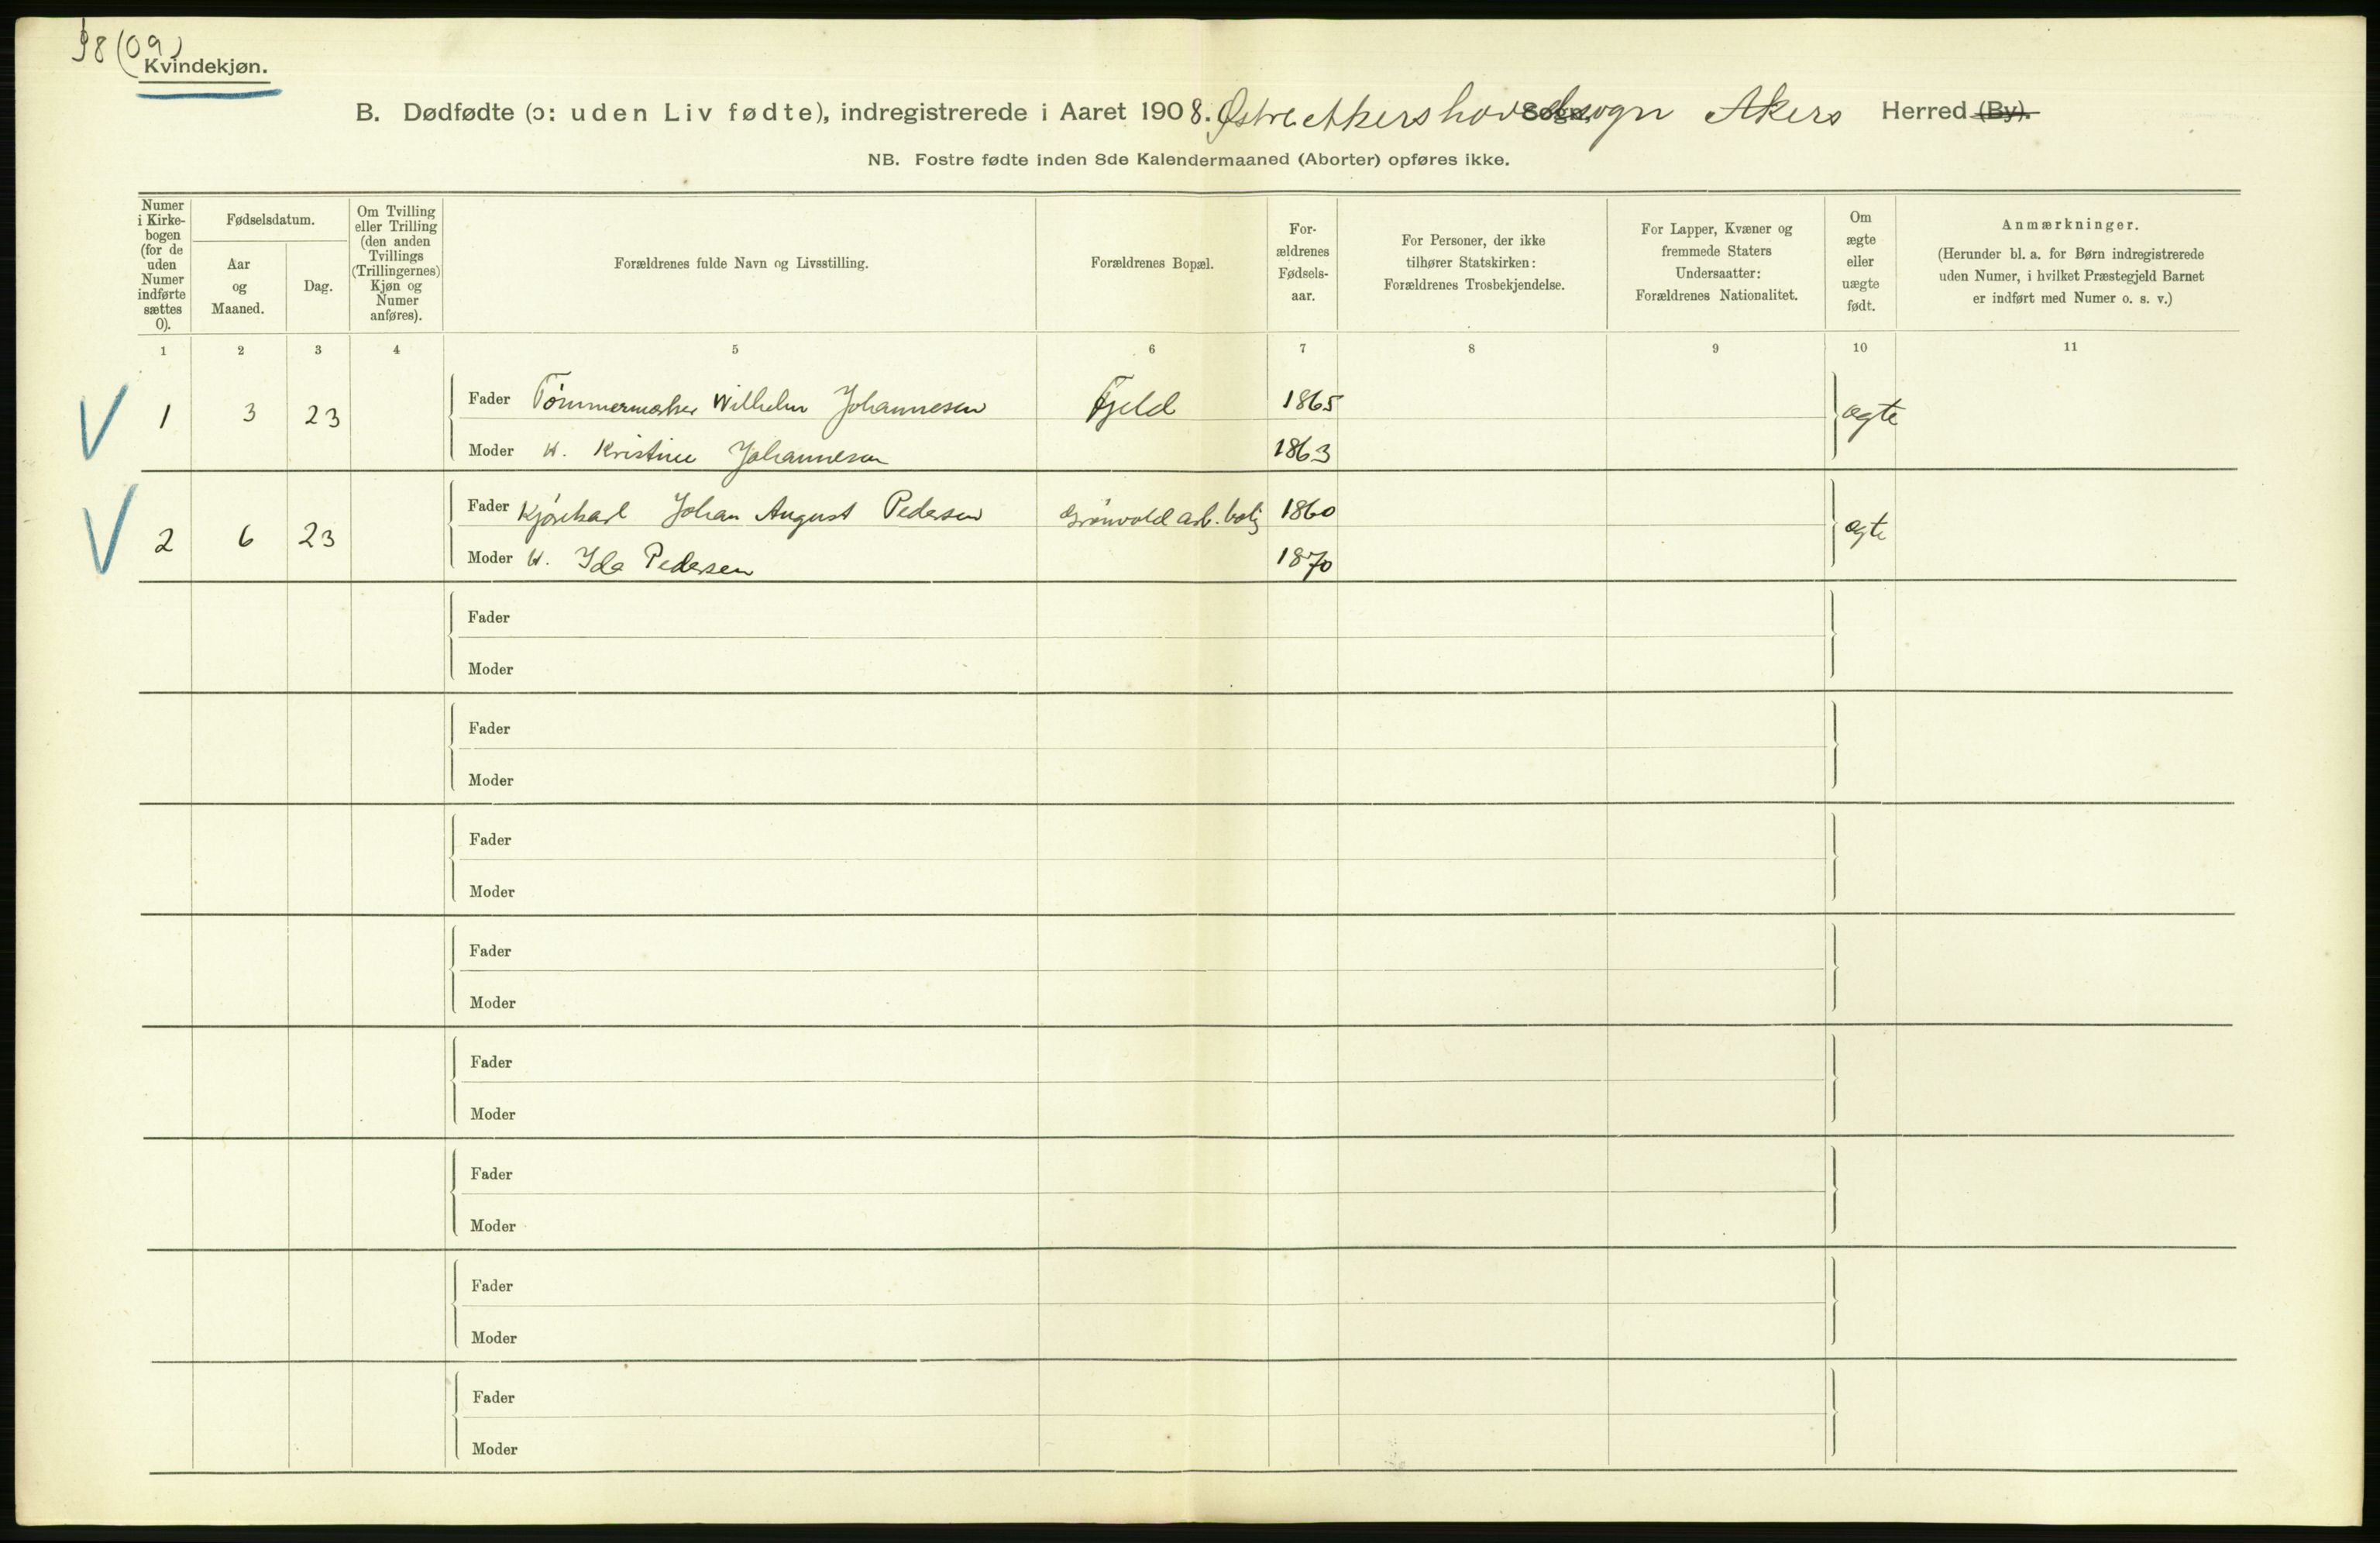 98 (09)
Kvindekjøn.
B. Dødfødte (ɔ: uden Liv fødte), indregistrerede i Aaret 1908. Østre Akers hovedsogn Sogn, Akers Herred (By).
NB. Fostre fødte inden 8de Kalendermaaned (Aborter) opføres ikke.
Numer
i Kirke-
bogen
(for de
uden
Numer
indførte
sættes
0).
Fødselsdatum.
Aar
og
Maaned.
Dag.
Om Tvilling
eller Trilling
(den anden
Tvillings
(Trillingernes)
Kjøn og
Numer
anføres).
Forældrenes fulde Navn og Livsstilling.
Forældrenes Bopæl.
For-
ældrenes
Fødsels-
aar.
For Personer, der ikke
tilhører Statskirken:
Forældrenes Trosbekjendelse.
For Lapper, Kvæner og
fremmede Staters
Undersaatter:
Forældrenes Nationalitet.
Om
ægte
eller
uægte
født.
Anmærkninger.
(Herunder bl. a. for Børn indregistrerede
uden Numer, i hvilket Præstegjeld Barnet
er indført med Numer o. s. v.)
1 2 3 4 5 6 7 8 9 10 11
V 1 3 23 Fader Tømmermester Wilhelm Johannesen Fjeld 1865 ægte
Moder H. Kristine Johannesen 1863
V 2 6 23 Fader Kjørekarl Johan August Pedersen Grönvold arb. bolig 1860 ægte
Moder H. Ida Pedersen 1870
Fader
Moder
Fader
Moder
Fader
Moder
Fader
Moder
Fader
Moder
Fader
Moder
Fader
Moder
Fader
Moder